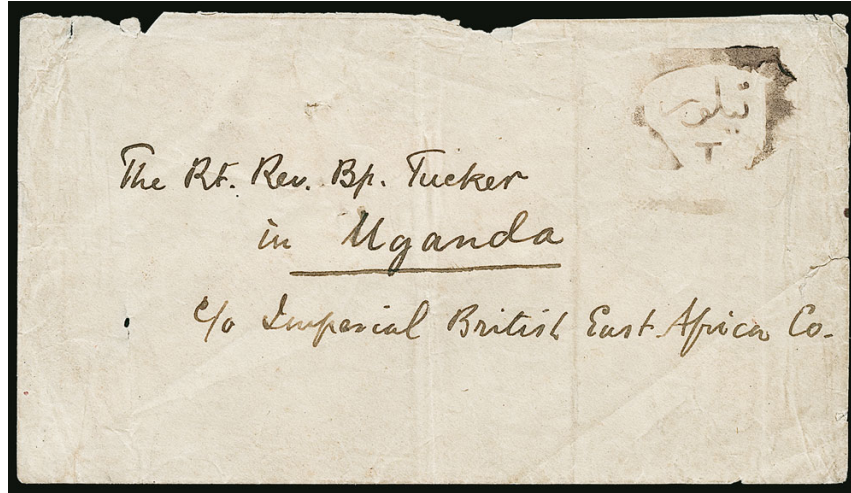 T
The Rt. Rev. Bp. Tucker
in Uganda
c/o Imperial British East Africa Co.